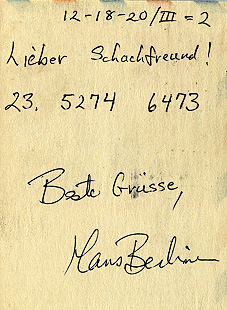 12-18-20/III = 2
Lieber Schachfreund!
23. 5274 6473
Beste Grüsse,
Hans Berliner